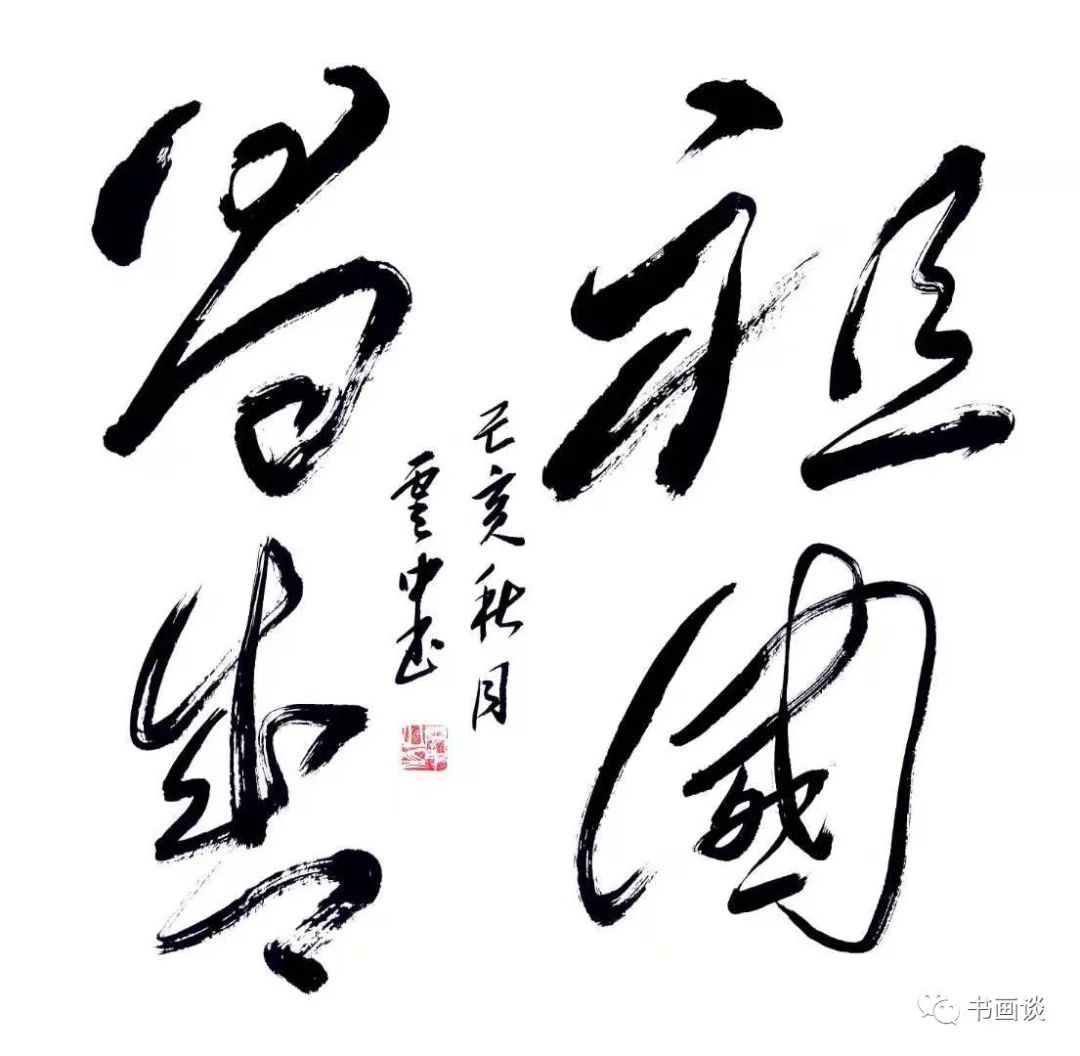 祖國
萬歲
己亥秋月
雲中書
书画谈